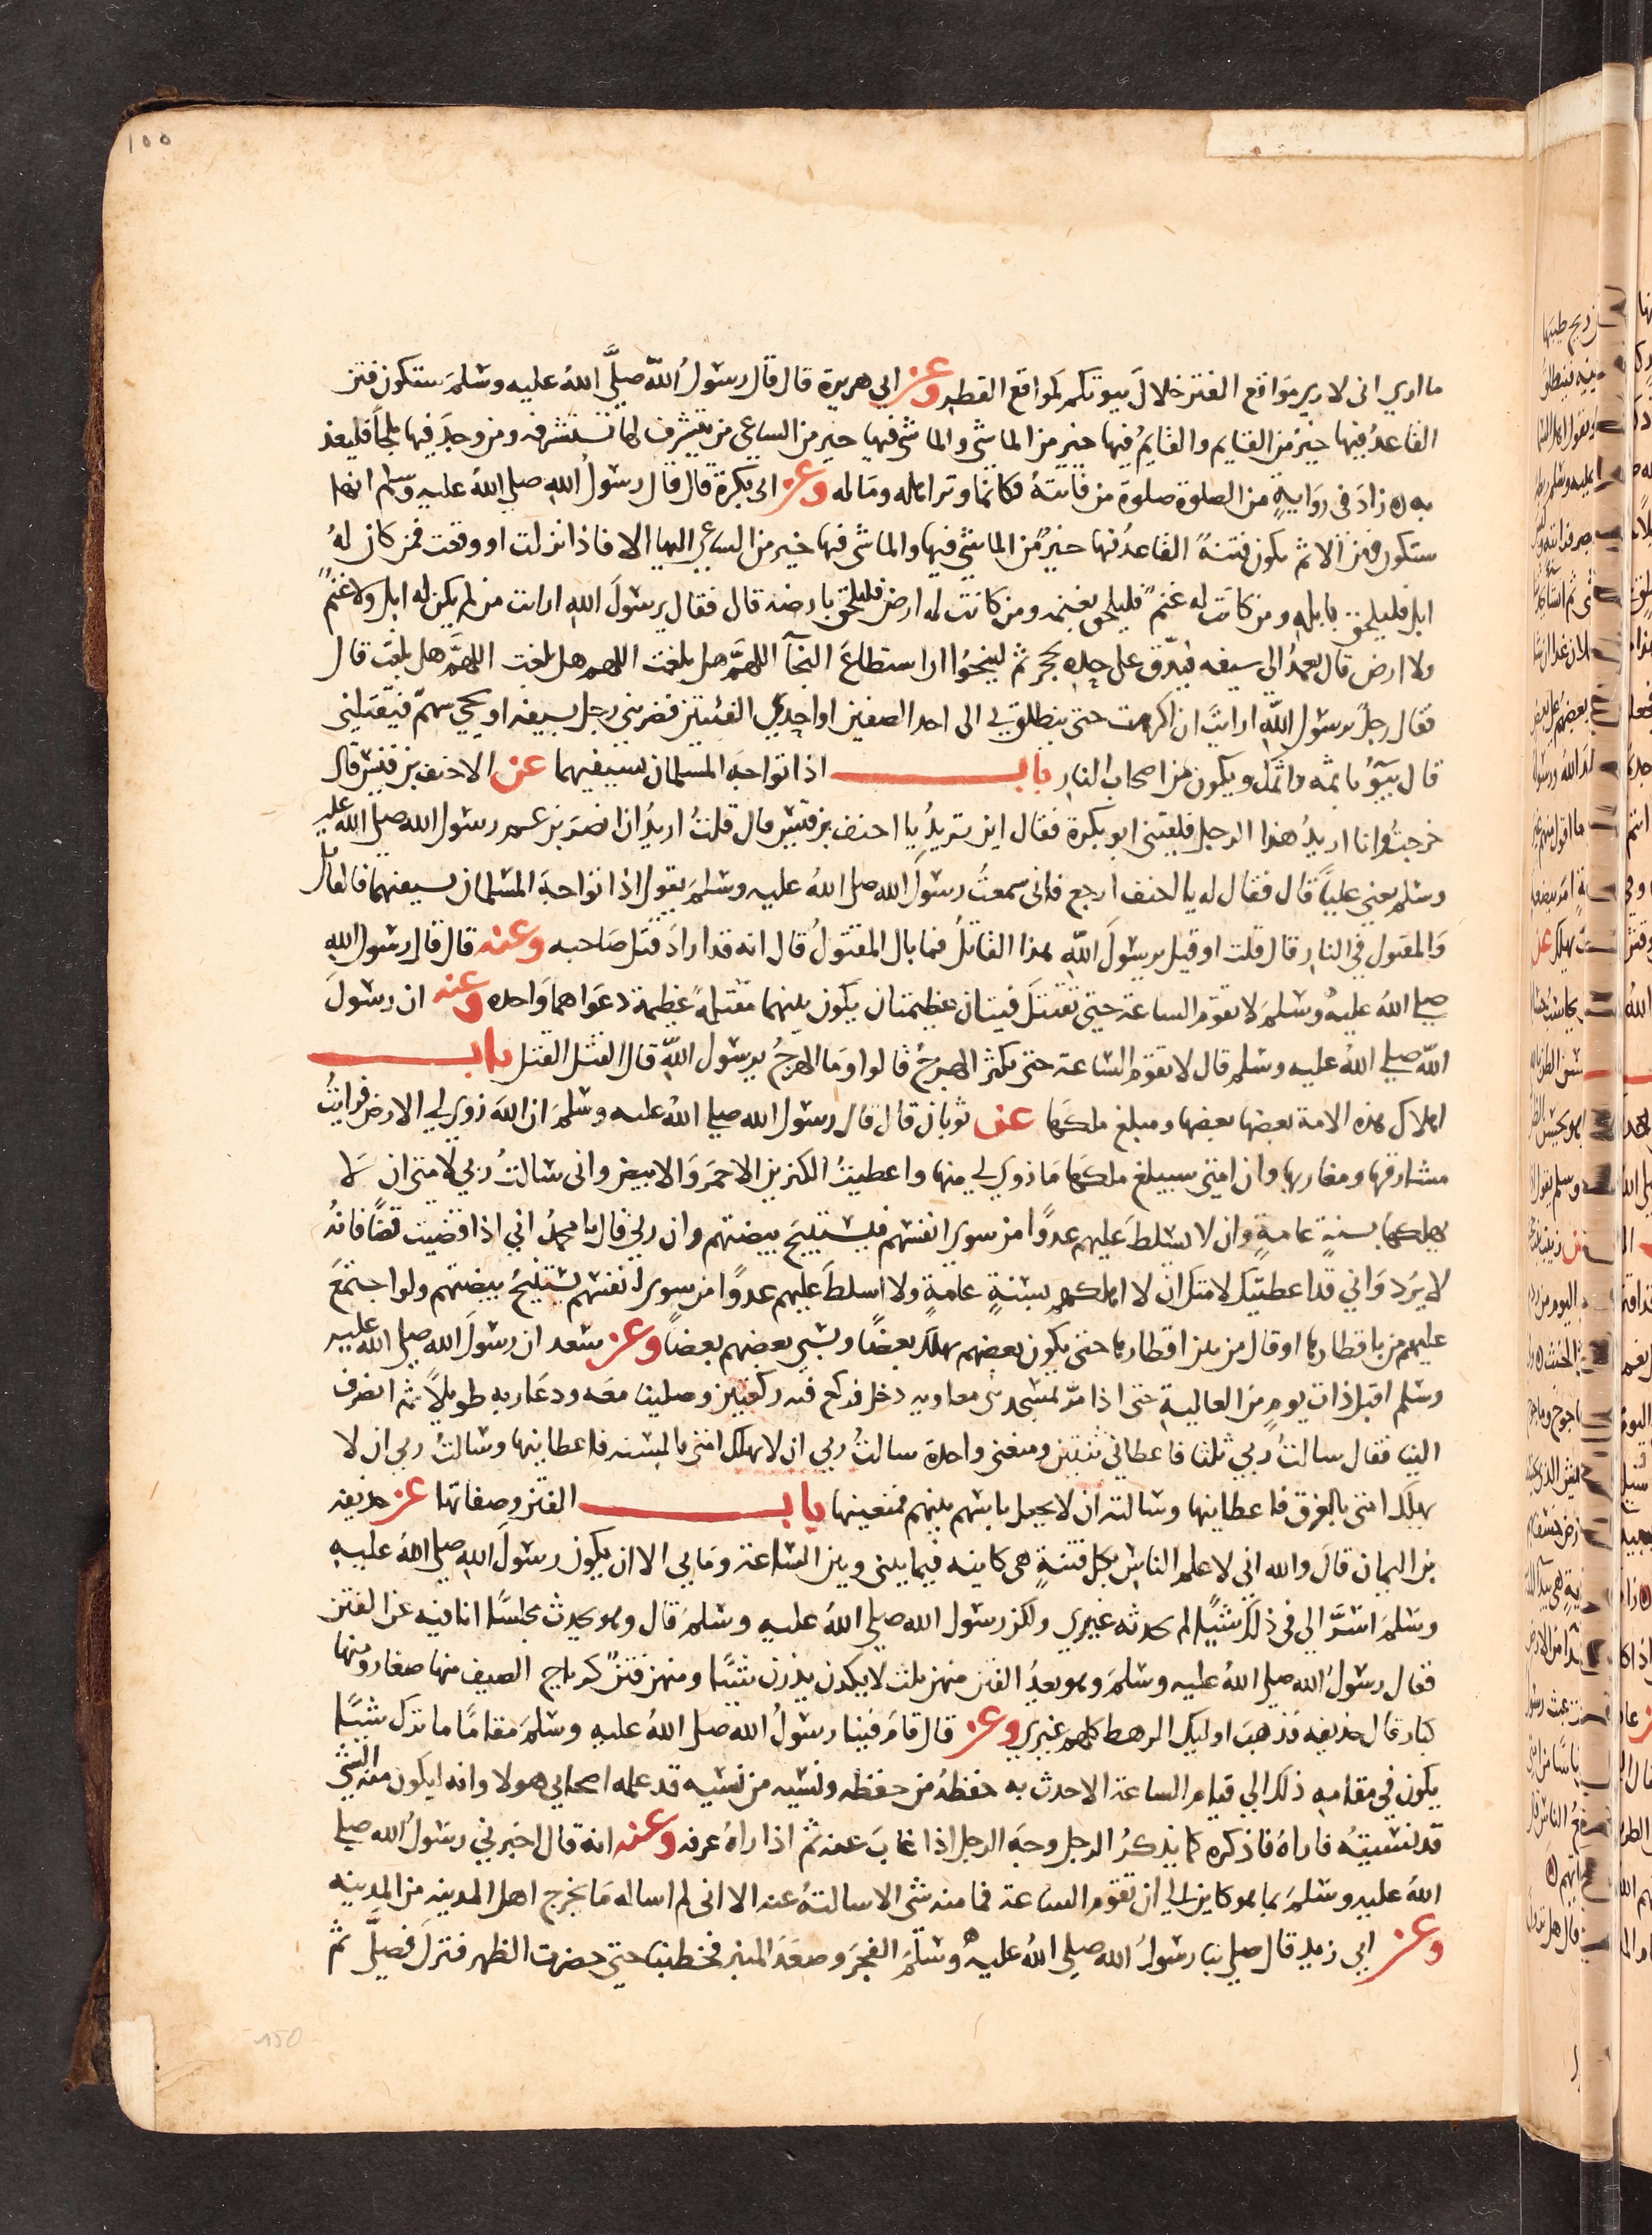 100
ما اري اني لاري مواقع الفتن خلال بيوتكم كمواقع القطر وعن ابي هريرة قال قال رسول الله صلى الله عليه وسلم ستكون فتن
القاعد فيها خير من القايم والقايم فيها خير من الماشي والماشي فيها خير من الساعي من تشرف لها تستشرفه ومن وجد فيها ملجأ فليعذ
به زاد في رواية من الصلوة صلوة من فاتته فكانما وتر اهله وماله وعن ابي بكرة قال قال رسول الله صلي الله عليه وسلم انها
ستكون فتن الا ثم تكون فتنة القاعد فيها خير من الماشي فيها والماشي فيها خير من الساعي اليها الا فاذا نزلت او وقعت فمن كان له
ابل فليلحق بابله ومن كانت له غنم فليلحق بغنمه ومن كانت له ارض فليلحق بارضه قال فقال يرسول الله ارايت من لم يكن له ابل ولا غنم
ولا ارض قال يعمد الى سيفه فيدق على حده بحجر ثم لينجوا ان استطاع النجآ اللهم هل بلغت اللهم هل بلغت اللهم هل بلغت قال
فقال رجل يرسول الله ارايت ان اكرهت حتى ينطلق بي الى احد الصفين او احدي الفئتين فضربني رجل بسيفه او يجي سهم فيقتلني
قال يبوء باثمه واثمك ويكون من اصحاب النار باب اذا تواجه المسلمان بسيفيهما عن الاحنف بن قيس قال
خرجت وانا اريد هذا الرجل فلقيني ابو بكرة فقال اين تريد يا احنف بن قيس قال قلت اريد ان انصر بن عم رسول الله صلى الله عليه
وسلم يعني عليا قال فقال له يا احنف ارجع فاني سمعت رسول الله صلى الله عليه وسلم يقول اذا تواجه المسلمان بسيفهما فالقاتل
والمقتول في النار قال قلت او قيل يرسول الله هذا القاتل فما بال المقتول قال انه قد اراد قتل صاحبه وعنه قال قال رسول الله
صلى الله عليه وسلم لا تقوم الساعة حتى تقتتل فيتان عظيمتان يكون بينهما مقتلة عظيمة دعواهما واحده وعنه ان رسول
الله صلي الله عليه وسلم قال لا تقوم الساعة حتى يكثر الهرج قالوا وما الهرج يرسول الله قال القتل القتل باب
اهلاك هذه الامة بعضها بعضها ومبلغ ملكها عن ثوبان قال قال رسول الله صلي الله عليه وسلم ان الله زوي لي الارض فرايت
مشارقها ومغاربها وان امتي سيبلغ ملكها ما زوي لي منها واعطيت الكنزين الاحمر والابيض واني سالت ربي لامتي ان لا
يهلكها بسنة عامة وان لا يسلط عليهم عدوا من سوى انفسهم فيستبيح بيضتهم وان ربي قال يا محمد اني اذا قضيت قضا فانه
لا يرد واني قد اعطيتك لامتك ان لا اهلكهم بسنة عامة ولا اسلط عليهم عدوا من سوى انفسهم يستبيح بيضتهم ولو اجتمع
عليهم من باقطارها او قال من بين اقطارها حتى يكون بعضهم يهلك بعضا ويسبي بعضهم بعضا وعن سعد ان رسول الله صلى الله عليه
وسلم اقبل ذات يوم من العالية حتى اذا مر بمسجد بني معاويه دخل فركع فيه ركعتين وصلينا معه ودعا ربه طويلا ثم انصرف
الينا فقال سالت ربي ثلثا فاعطاني ثنتين ومنعني واحدة سالت ربي ان لا يهلك امتي بالسنه فاعطانيها وسالت ربي ان لا
يهلك امتي بالغرق فاعطانيها وسالته ان لا يجعل باسهم بينهم فمنعنيها باب الفتن وصفاتها عن حذيفه
بن اليمان قال والله اني لاعلم الناس بكل فتنة هي كاينه فيما بيني وبين الساعة وما بي الا ان يكون رسول الله صلى الله عليه
وسلم اسر الي في ذلك شيئا لم يحدثه غيري ولكن رسول الله صلي الله عليه وسلم قال وهو يحدث مجلسا انا فيه عن الفتن
فقال رسول الله صلى الله عليه وسلم وهو يعد الفتن منهن ثلث لا يكدن يذرن شيئا ومنهن فتن كرياح الصيف منها صغار ومنها
كبار قال حذيفه فذهب اوليك الرهط كلهم غيري وعن قال قام فينا رسول الله صلى الله عليه وسلم مقاما ما ترك شيئا
يكون في مقامه ذلك الي قيام الساعة الا حدث به حفظه من حفظه ونسيه من نسيه قد علمه اصحابي هولا وانه ليكون منه الشي
قد نسيته فاراه فاذكره كما يذكر الرجل وجه الرجل اذا غاب عنه ثم اذا راه عرفه وعنه انه قال اخبرني رسول الله صلي
الله عليه وسلم بما هو كاين الي ان تقوم الساعة فما منه شي الا سالته عنه الا اني لم اساله ما يخرج اهل المدينه من المدينه
وعن ابي زيد قال صلي بنا رسول الله صلي الله عليه وسلم الفجر وصعد المنبر فخطبنا حتى حضرت الظهر فنزل فصلى ثم
150